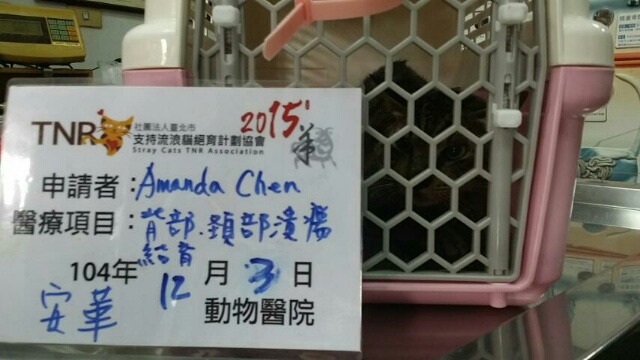 2015'
TNR 社團法人臺北市
支持流浪貓絕育計劃協會
Stray Cats TNR Association
申請者：Amanda Chen
醫療項目：背部、頸部潰瘍
結紮
104年 12月 3日
安華 動物醫院